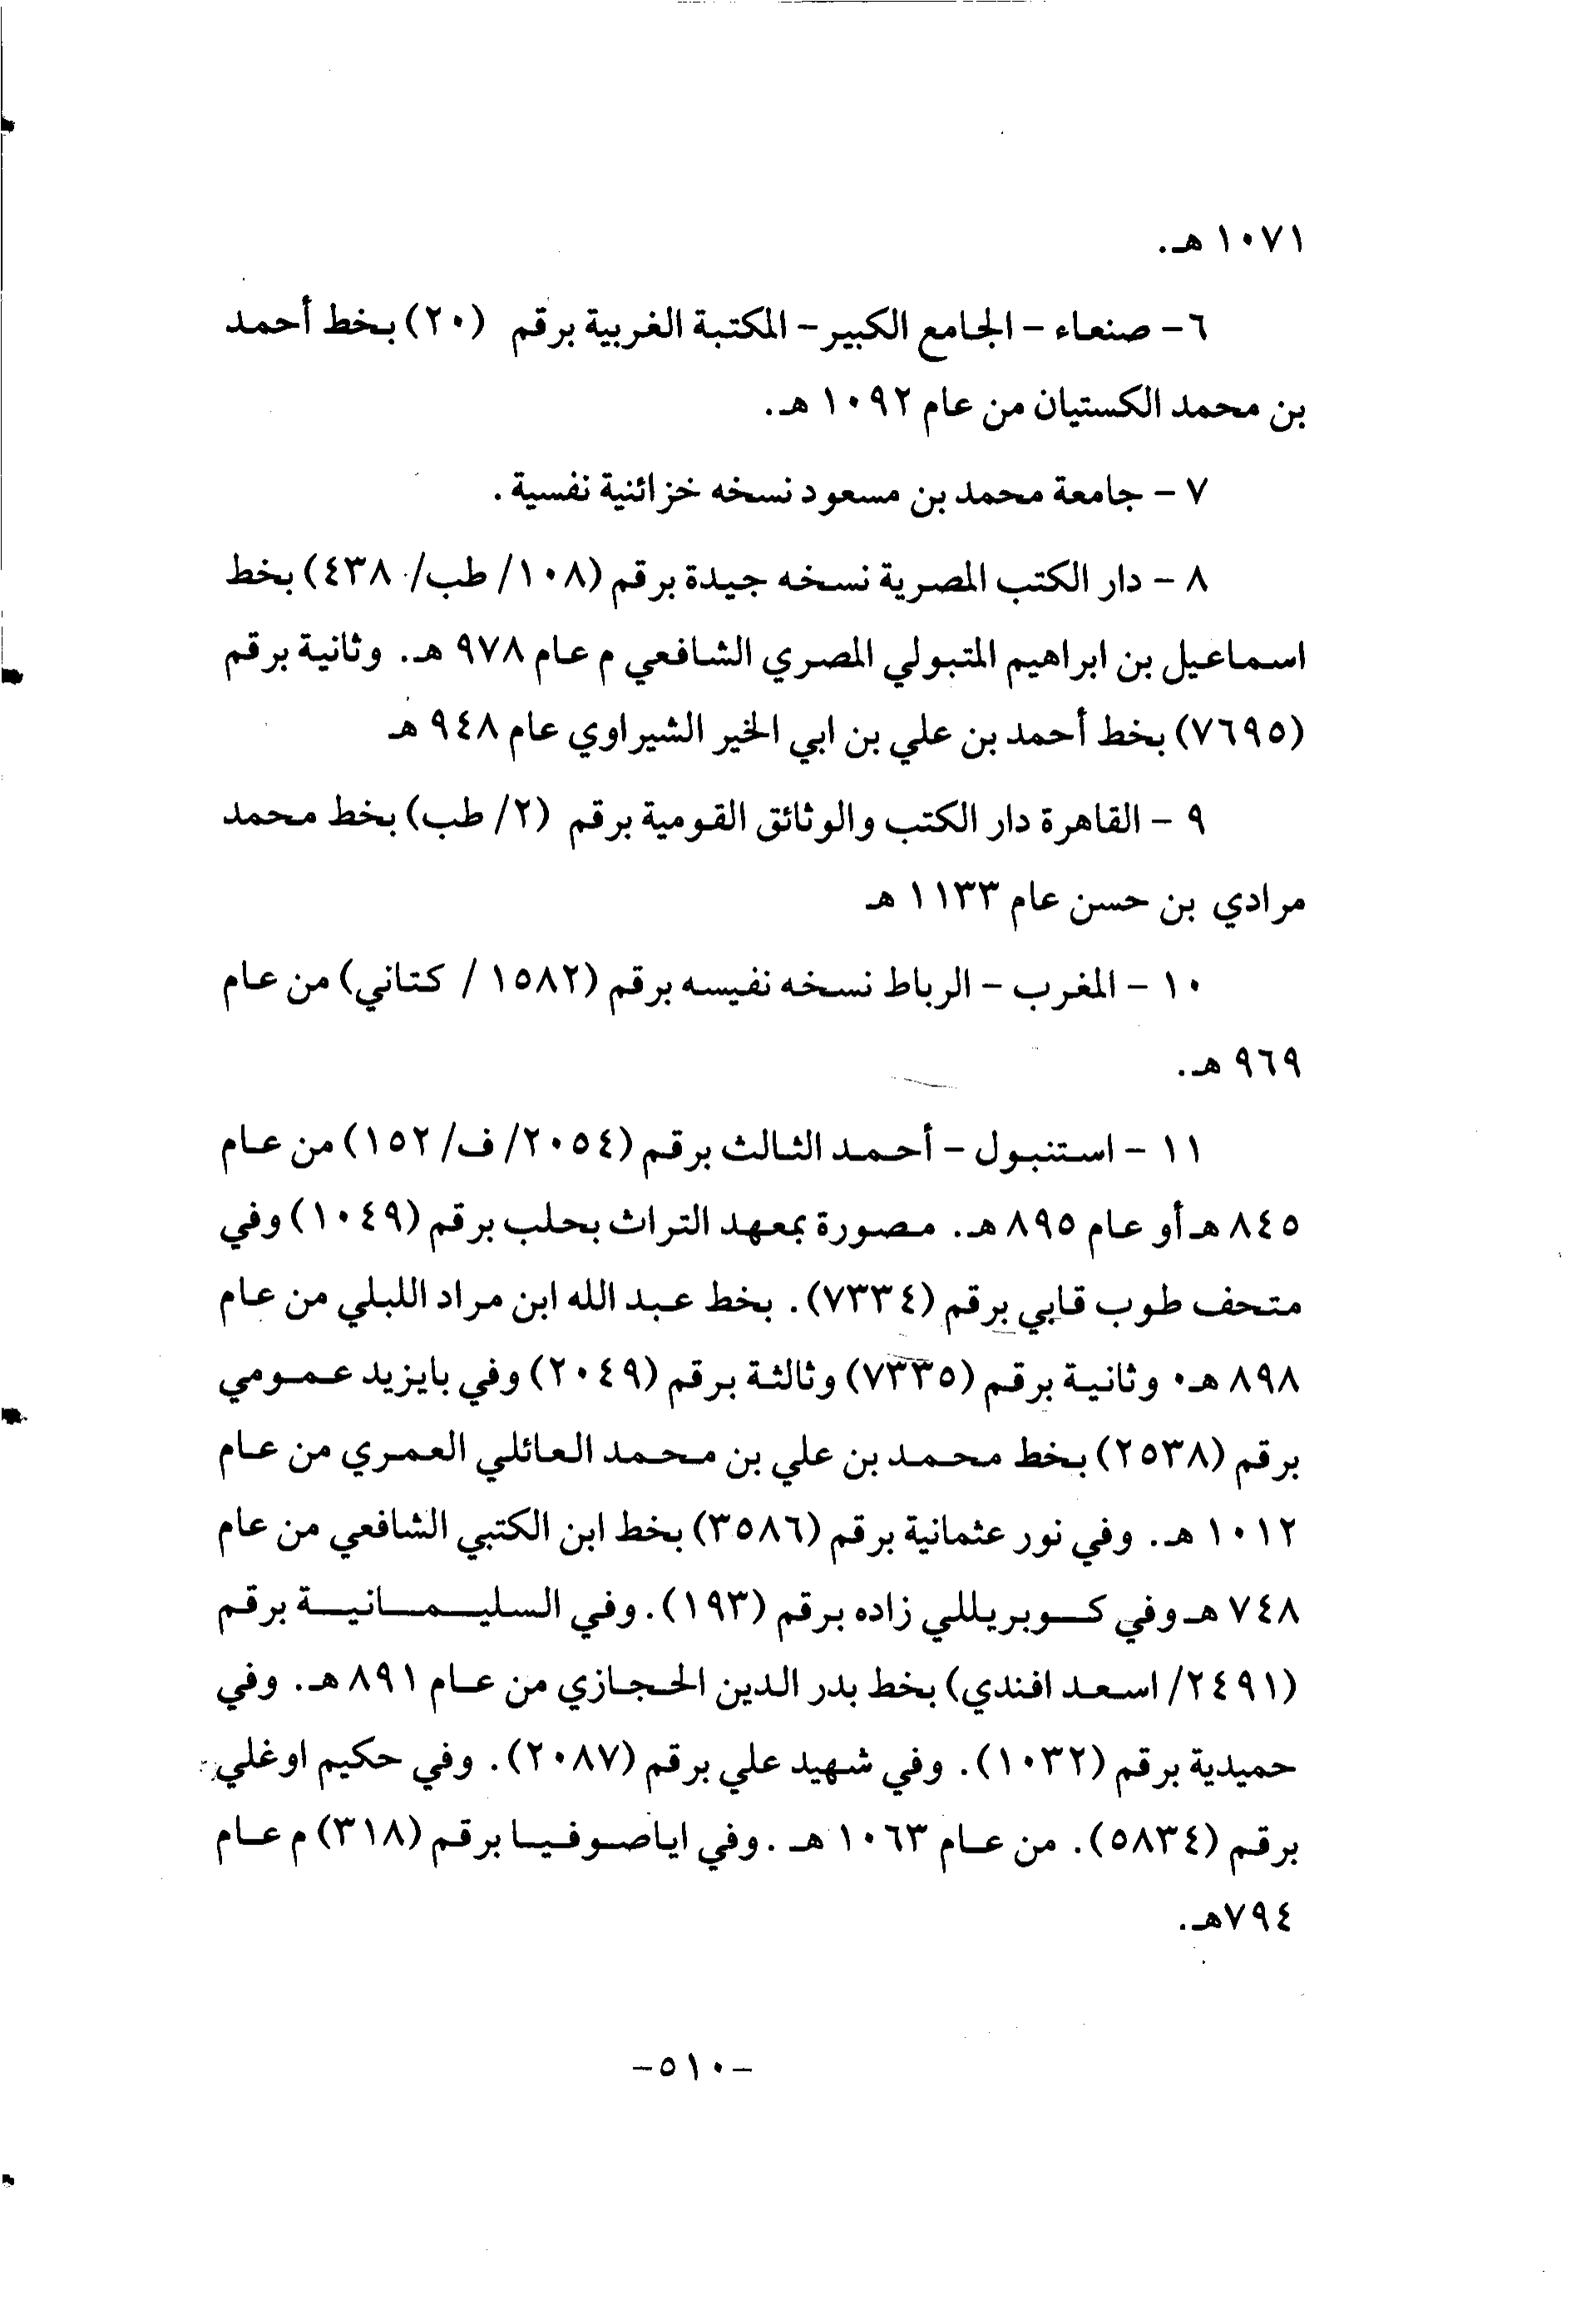 ١٠٧١ هـ.
٦- صنعاء - الجامع الكبير- المكتبة الغربية برقم (٢٠) بخط أحمد
بن محمد الكستيان من عام ١٠٩٢ هـ.
٧ - جامعة محمد بن مسعود نسخه خزائنية نفسية.
٨ - دار الكتب المصرية نسخه جيدة برقم (١٠٨/ طب/ ٤٣٨) بخط
اسماعيل بن ابراهيم المتبولي المصري الشافعي م عام ٩٧٨ هـ. وثانية برقم
(٧٦٩٥) بخط أحمد بن علي بن ابي الخير الشيراوي عام ٩٤٨ هـ
٩ - القاهرة دار الكتب والوثائق القومية برقم (٢/ طب) بخط محمد
مرادي بن حسن عام ١١٣٣ هـ
١٠ - المغرب - الرباط نسخه نفيسه برقم (١٥٨٢ / كتاني) من عام
٩٦٩ هـ.
١١ - استنبول - أحمد الثالث برقم (٢٠٥٤/ ف/ ١٥٢) من عام
٨٤٥ هـ أو عام ٨٩٥ هـ. مصورة بمعهد التراث بحلب برقم (١٠٤٩) وفي
متحف طوب قابي برقم (٧٣٣٤). بخط عبد الله ابن مراد اللبلي من عام
٨٩٨ هـ. وثانية برقم (٧٣٣٥) وثالثة برقم (٢٠٤٩) وفي بايزيد عمومي
برقم (٢٥٣٨) بخط محمد بن علي بن محمد العائلي العمري من عام
١٠١٢ هـ. وفي نور عثمانية برقم (٣٥٨٦) بخط ابن الكتبي الشافعي من عام
٧٤٨ هـ وفي كوبريللي زاده برقم (١٩٣). وفي السليمانية برقم
(٢٤٩١/ اسعد افندي) بخط بدر الدين الحجازي من عام ٨٩١ هـ. وفي
حميدية برقم (١٠٣٢). وفي شهيد علي برقم (٢٠٨٧). وفي حكيم اوغلي
برقم (٥٨٣٤). من عام ١٠٦٣ هـ. وفي اياصوفيا برقم (٣١٨) م عام
٧٩٤هـ.
-٥١٠-